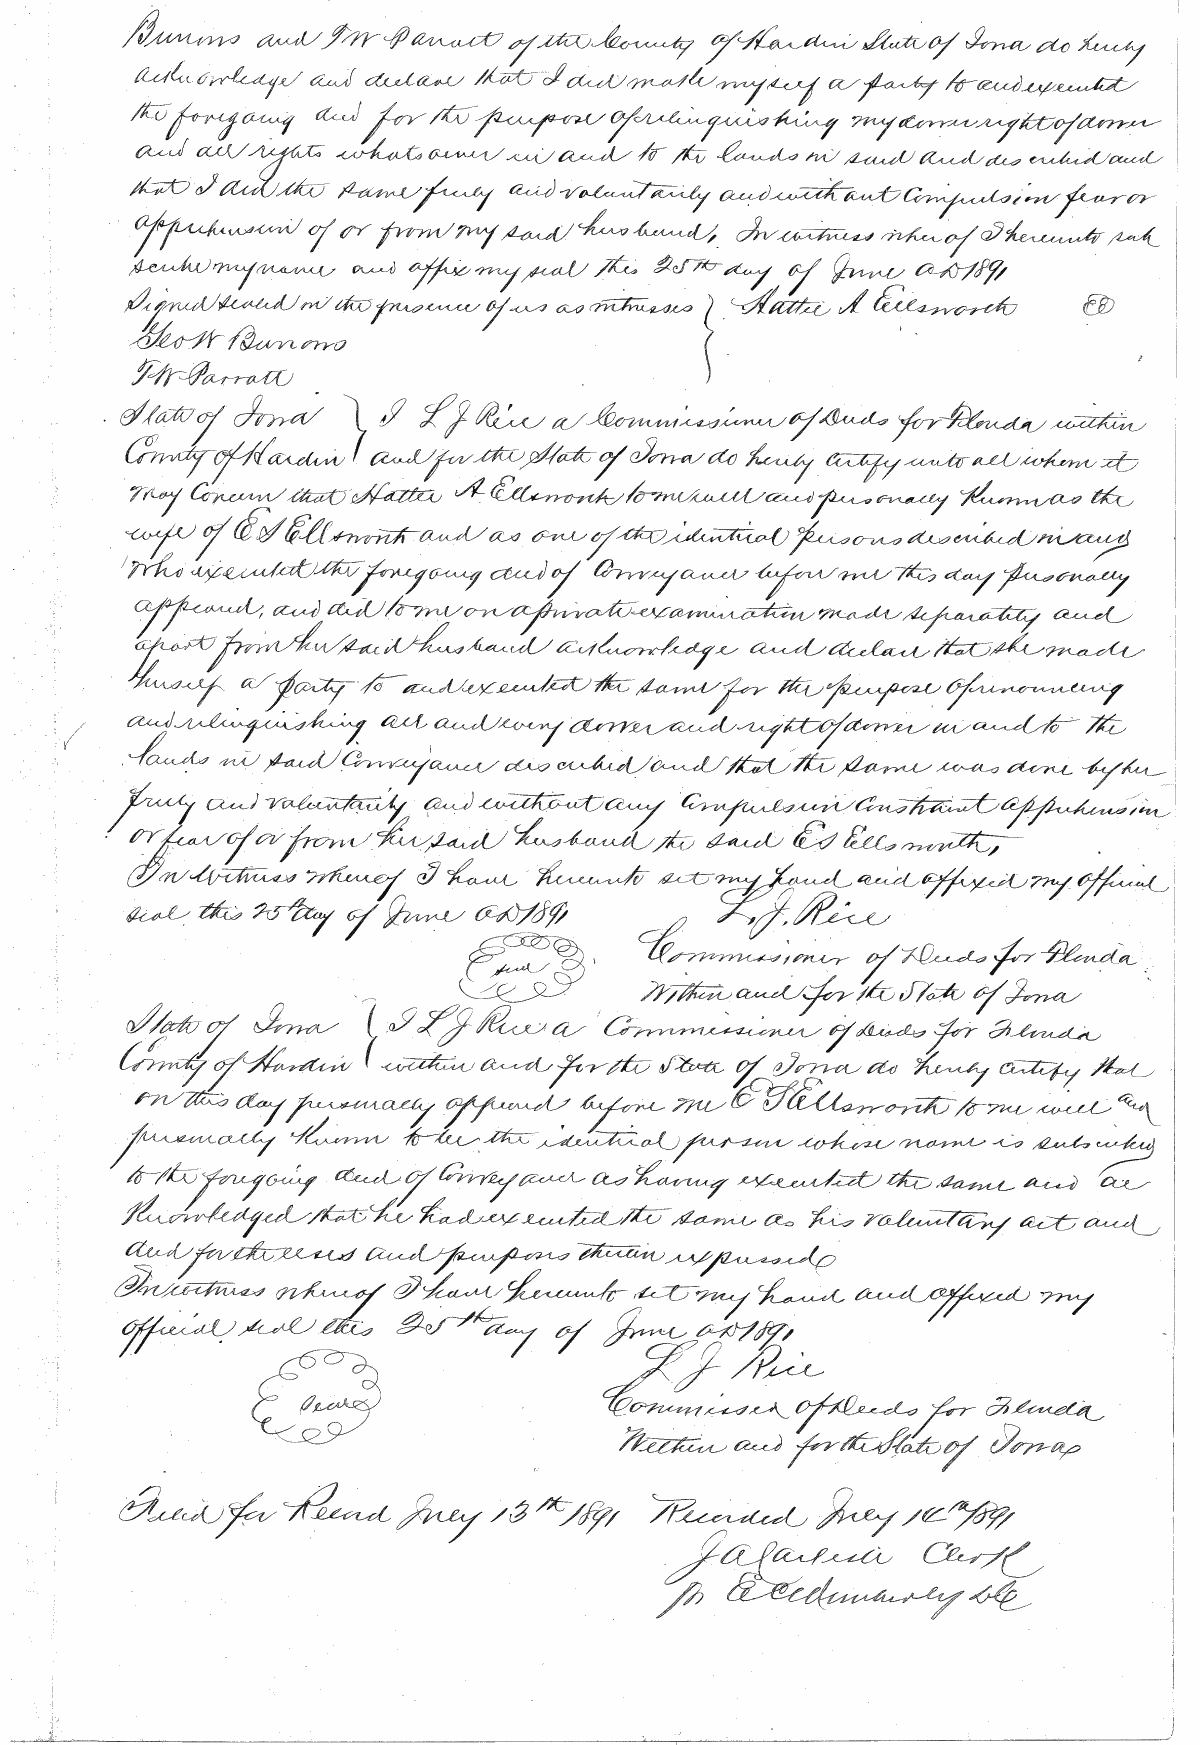 Burrons and T W Parratt of the County of Hardin State of Iowa do hereby
acknowledge and declare that I did make myself a party to and executed
the foregoing deed for the purpose of relinquishing my dower right of dower
and all rights whatsoever in and to the lands in said deed described and
that I did the same freely and voluntarily and without Compulsion fear or
apprehension of or from my said husband, In witness wherof I hereunto sub
scribe my name and affix my seal this 25th day of June AD 1891
Signed sealed in the presence of us as witnesses } Hattie A Ellsworth
Geo W Burrons
T W Parratt
State of Iowa } I L J Rice a Commissioner of Deeds for Florida within
County of Hardin } and for the State of Iowa do hereby certify unto all whom it
may Concern that Hattie A Ellsworth to me well and personally Known as the
wife of E S Ellsworth and as one of the identical Persons described in and
who executed the foregoing deed of Conveyance before me this day personally
appeared, and did to me on a private examination made separately and
apart from her said husband acknowledge and declare that she made
herself a party to and executed the same for the purpose of renouncing
and relinquishing all and every dower and right of dower in and to the
lands in said Conveyance described and that the same was done by her
freely and voluntarily and without any Compulsion Constraint apprehension
or fear of or from her said husband the said E S Ellsworth,
In Witness whereof I have hereunto set my hand and affixed my official
seal this 25th day of June AD 1891 L. J. Rice
seal Commissioner of Deeds for Florida
Within and for the State of Iowa
State of Iowa } I L J Rice a Commissioner of Deeds for Florida
County of Hardin } within and for the State of Iowa do hereby certify that
on this day personally appeared before me E S Ellsworth to me well and
personally Known to be the identical person whose name is subscribed
to the foregoing deed of Conveyance as having executed the same and ac
Knowledged that he had executed the same as his voluntary act and
deed for the uses and purposes therein expressed
In witness whereof I have hereunto set my hand and affixed my
official seal this 25th day of June AD 1891
L J Rice
Seal Commisser of Deeds for Florida
Within and for the State of Iowa
Filed for Record July 13th 1891 Recorded July 14th 1891
J A Clerk
pr DC